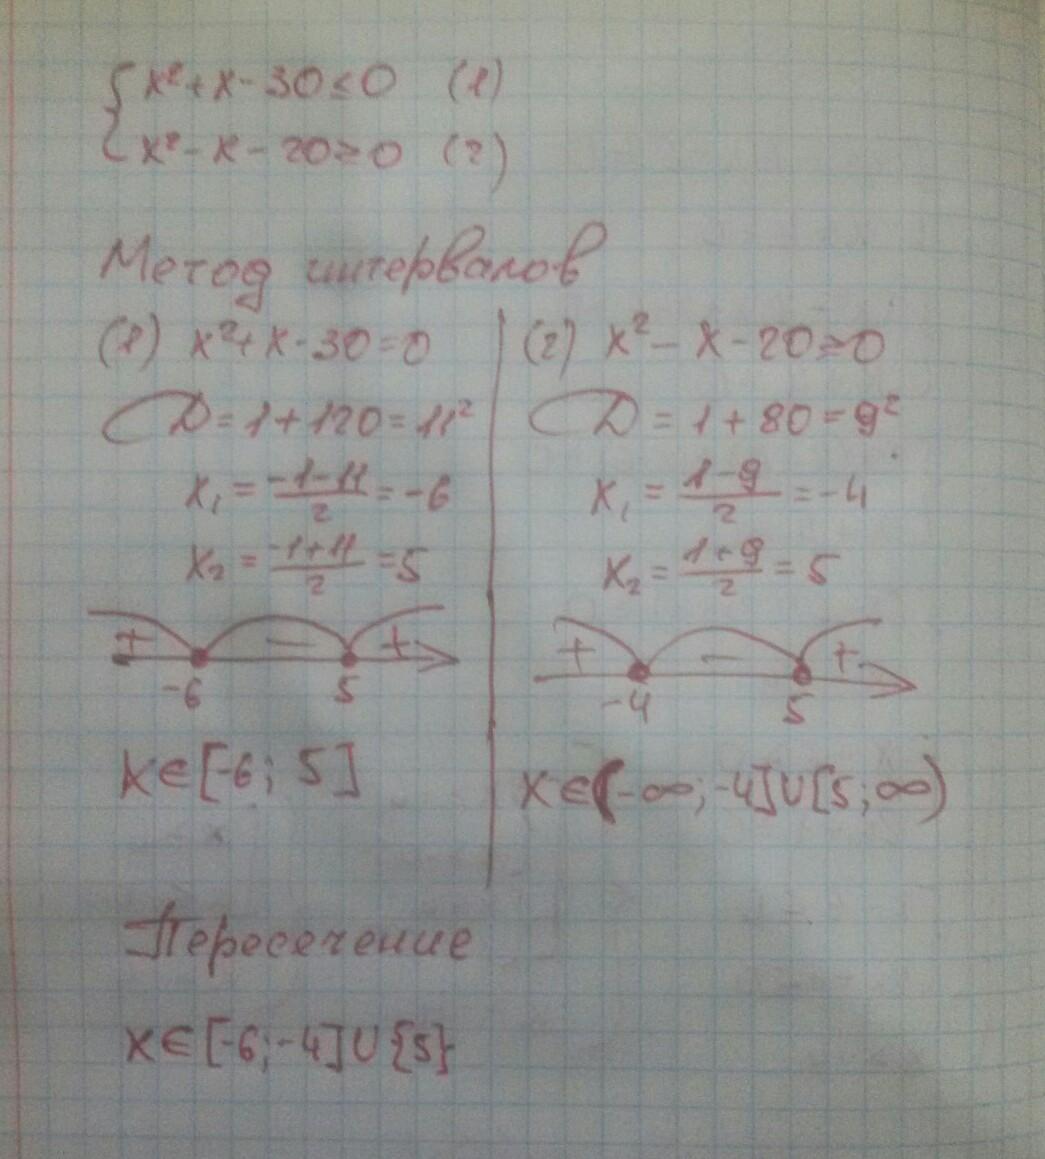 {x²+x-30≤0 (1)
{x²-x-20≥0 (2)
Метод интервалов
(1) x²+x-30=0
D=1+120=11²
x₁=(-1-11)/2=-6
x₂=(-1+11)/2=5
+ − +
-6 5
x∈[-6; 5]
(2) x²-x-20≥0
D=1+80=9²
x₁=(1-9)/2=-4
x₂=(1+9)/2=5
+ − +
-4 5
x∈(-∞;-4]∪[5;∞)
Пересечение
x∈[-6;-4]∪{5}